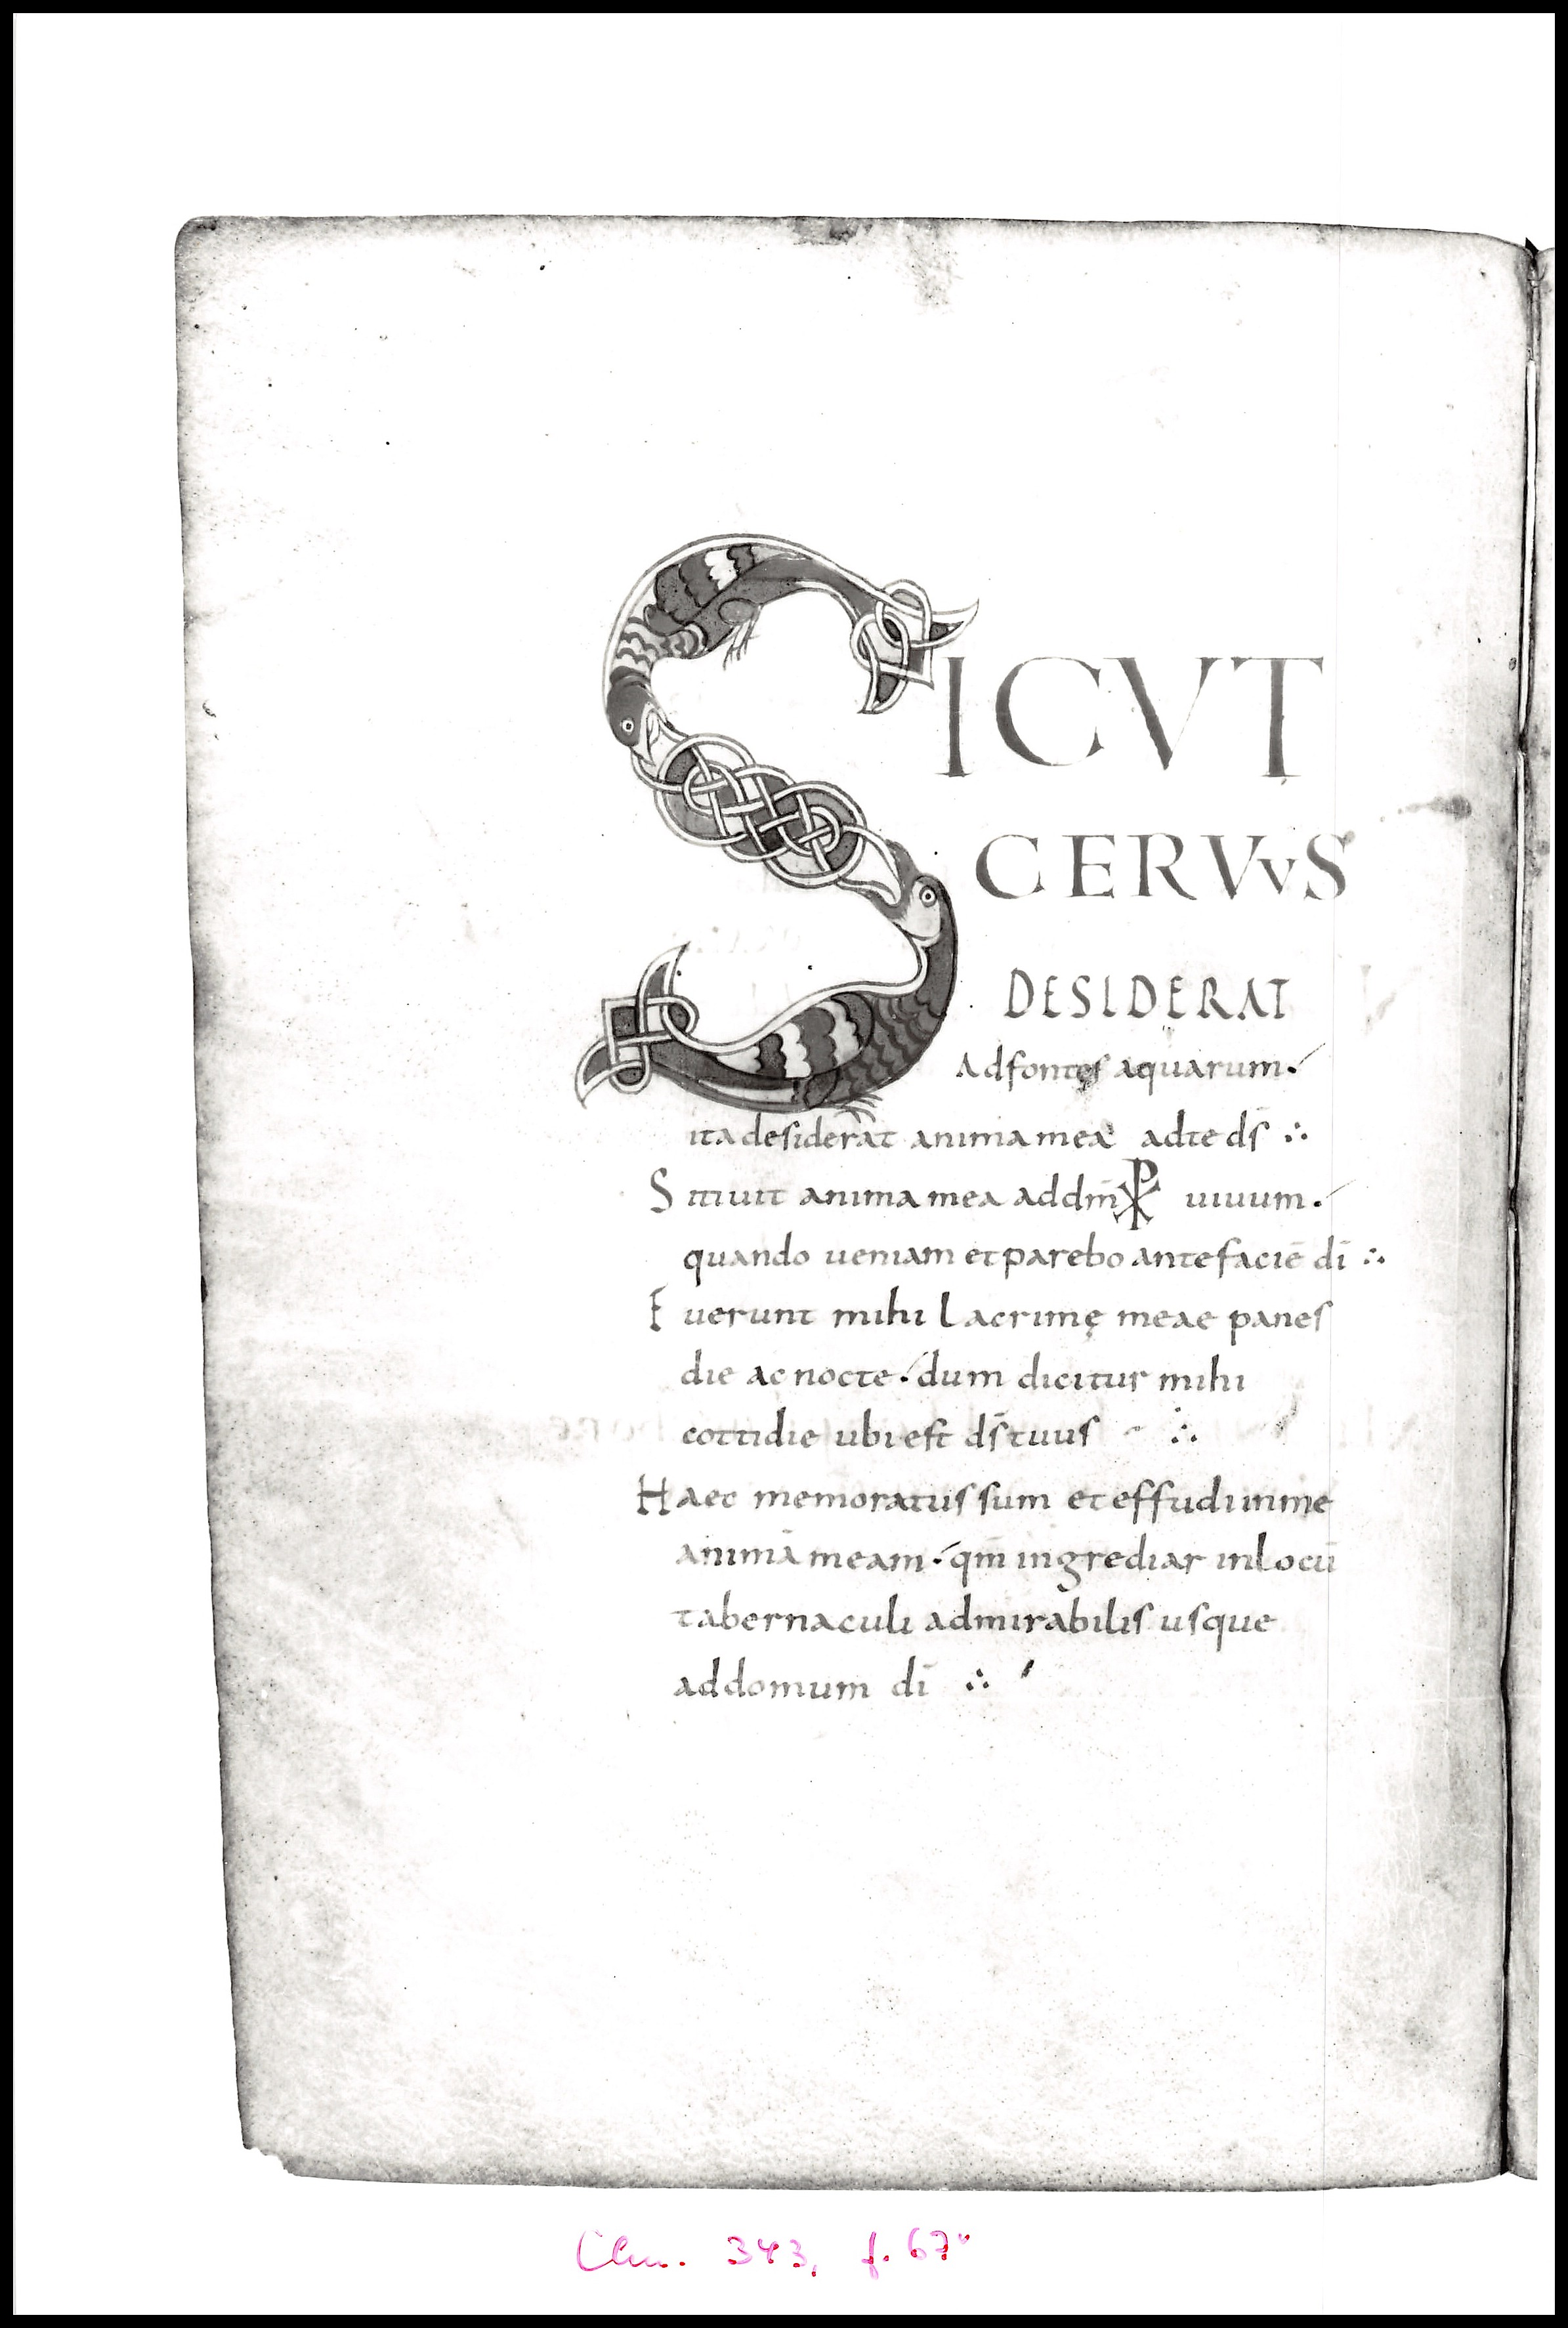 SICVT
CERVVS
DESIDERAT
Adfontes aquarum·
ita desiderat anima mea adte ds̄ ∴
Sitiuit anima mea addm̄ ☧ uiuum·
quando ueniam et parebo ante faciē dī ∴
Fuerunt mihi lacrimę meae panes
die ac nocte· dum dicitur mihi
cottidie ubi est ds̄ tuus ∴
Haec memoratus sum et effudi inme
animā meam· qm̄ ingrediar inlocū
tabernaculi admirabilis usque
addomum dī ∴
Clm. 343, f. 67ᵛ